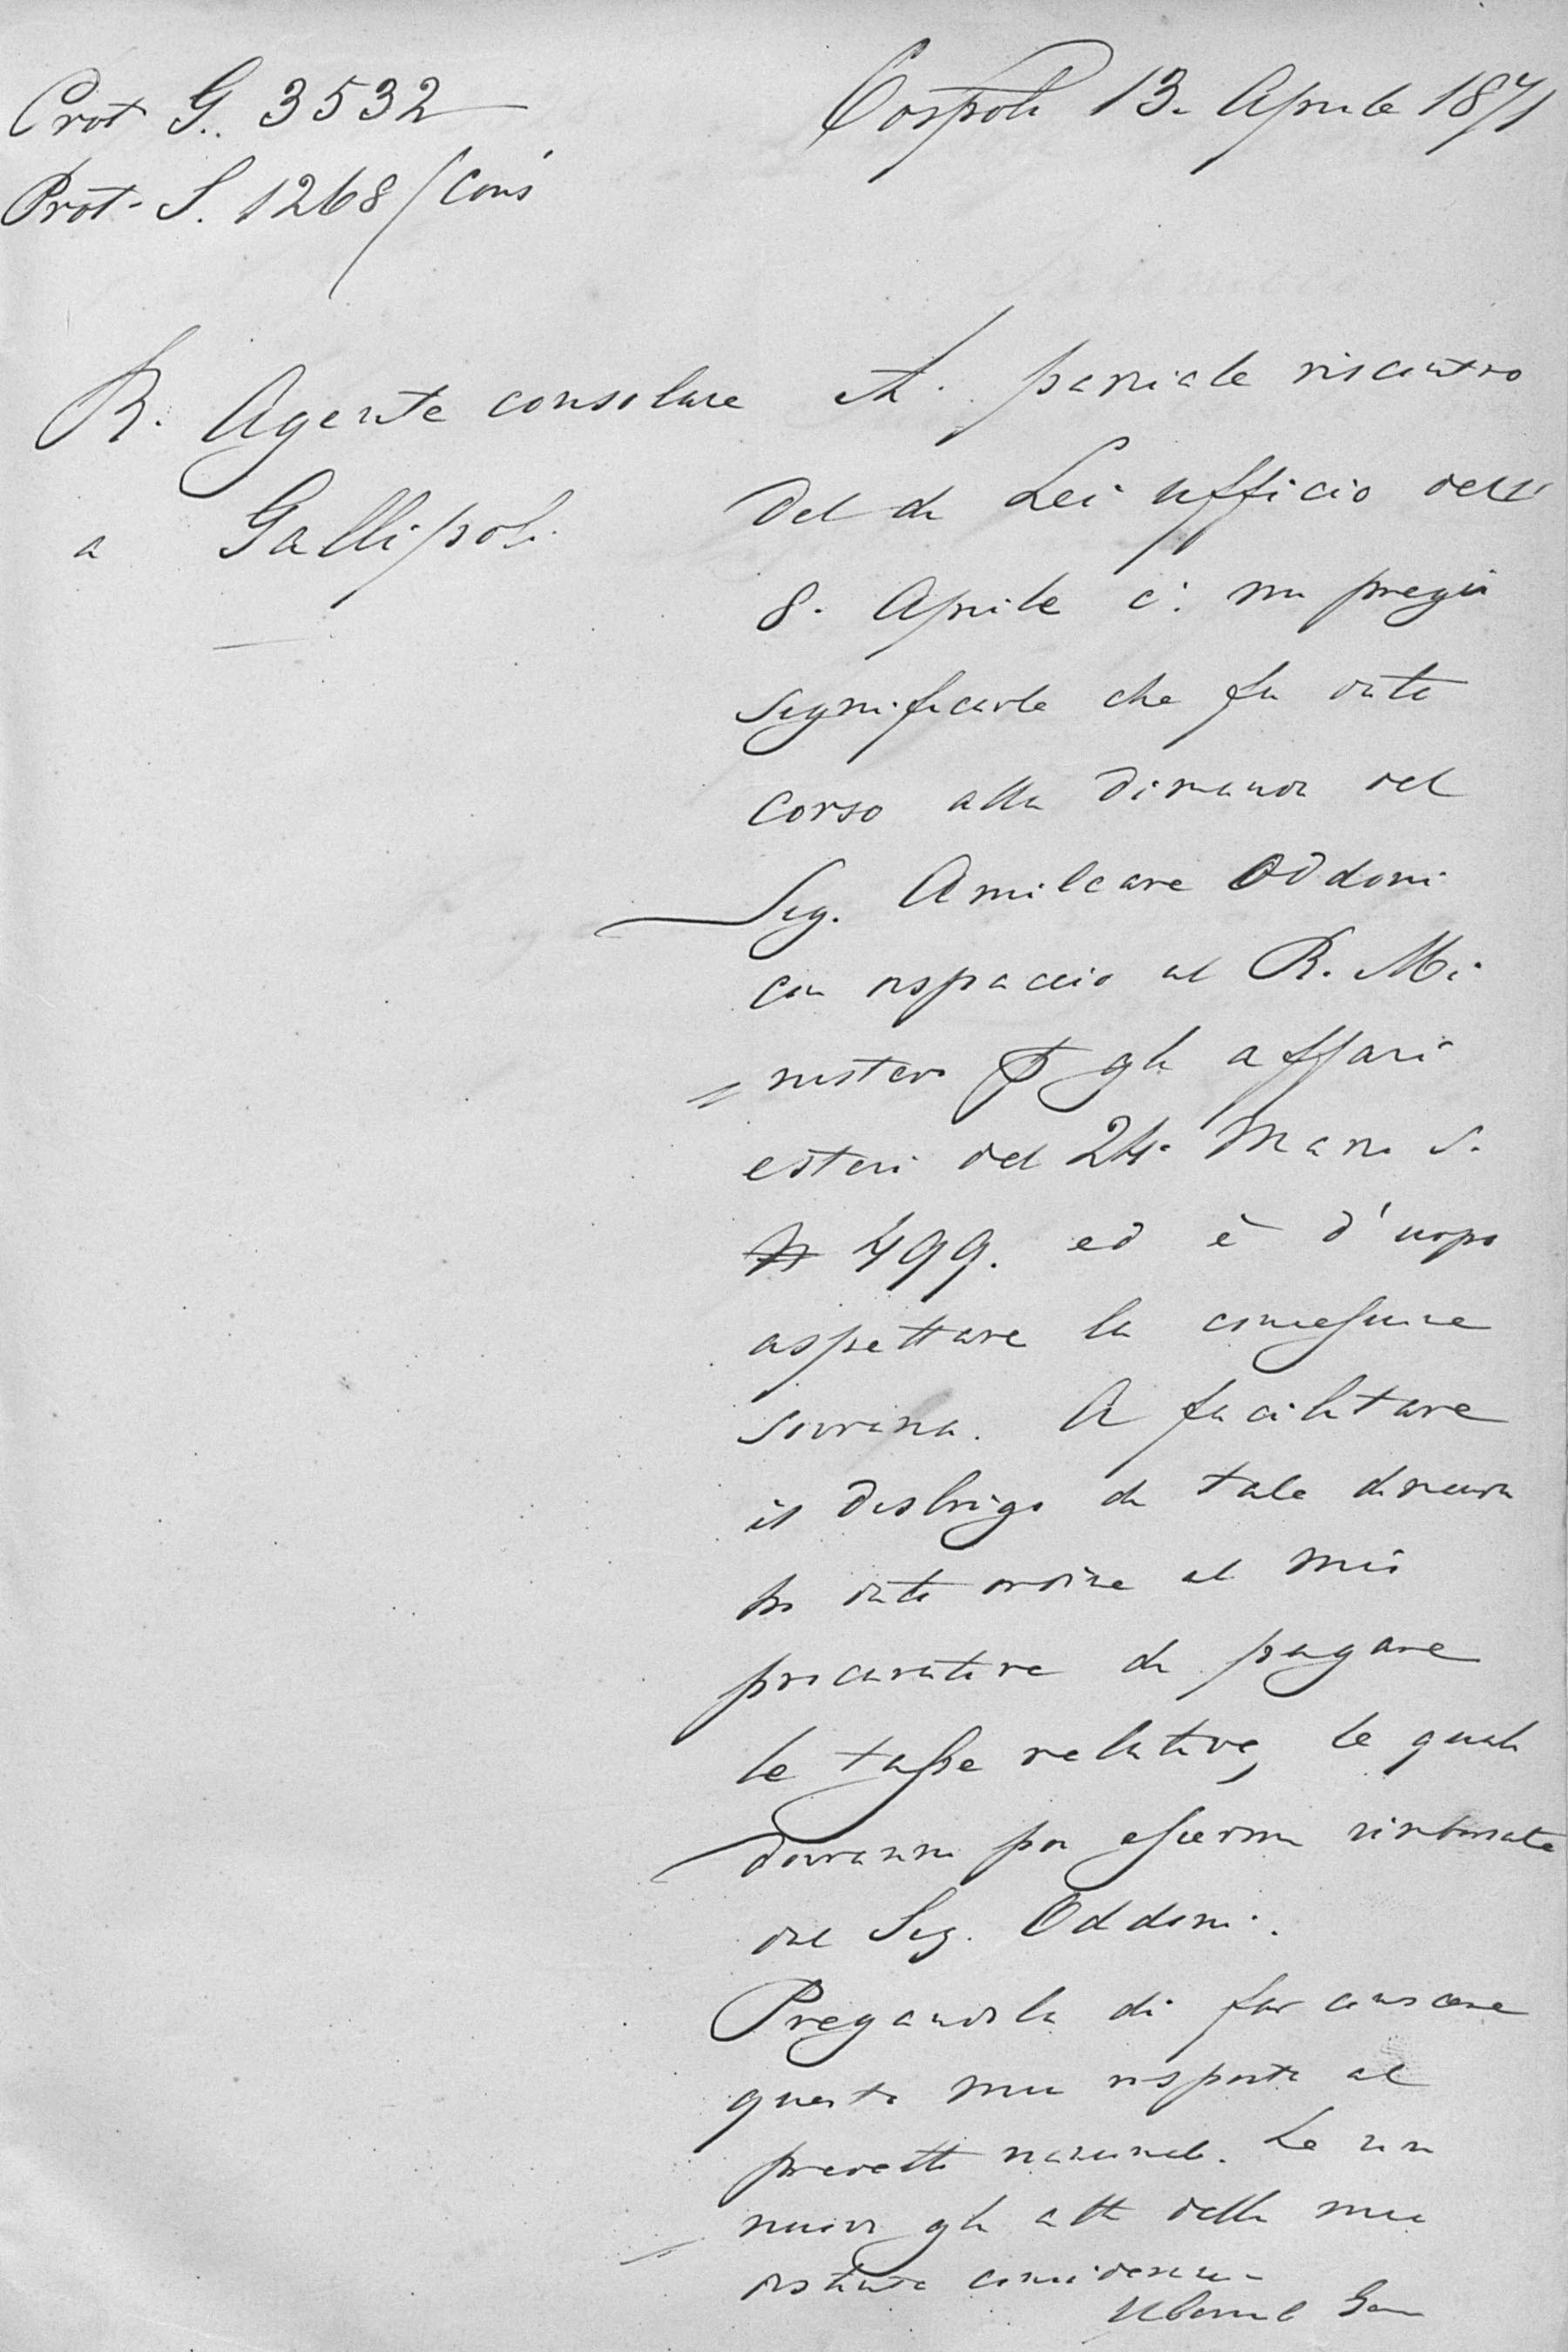 Prot. G. 3532
Cospoli 13. Aprile 1871
Prot. S. 1268/Cons
R. Agente consolare
a Gallipoli
A parziale riscontro
del di Lei ufficio dell'
8. Aprile c. mi pregio
significarle che fu dato
corso alla dimanda del
Sig. Amilcare Oddoni
con dispaccio al R. Mi
=nistero p gli affari
esteri del 24. Marzo s.
N 499. ed è d'uopo
aspettare la concessione
sovrana. A facilitare
il disbrigo di tale dimanda
ho dato ordine al mio
procuratore di pagare
le tasse relative, le quali
dovranno poi essermi rimborsate
dal Sig. Oddoni.
Pregandola di far conoscere
questa mia risposta al
predetto nazionale. Le rin
=nuovo gli atti della mia
distinta considerazione